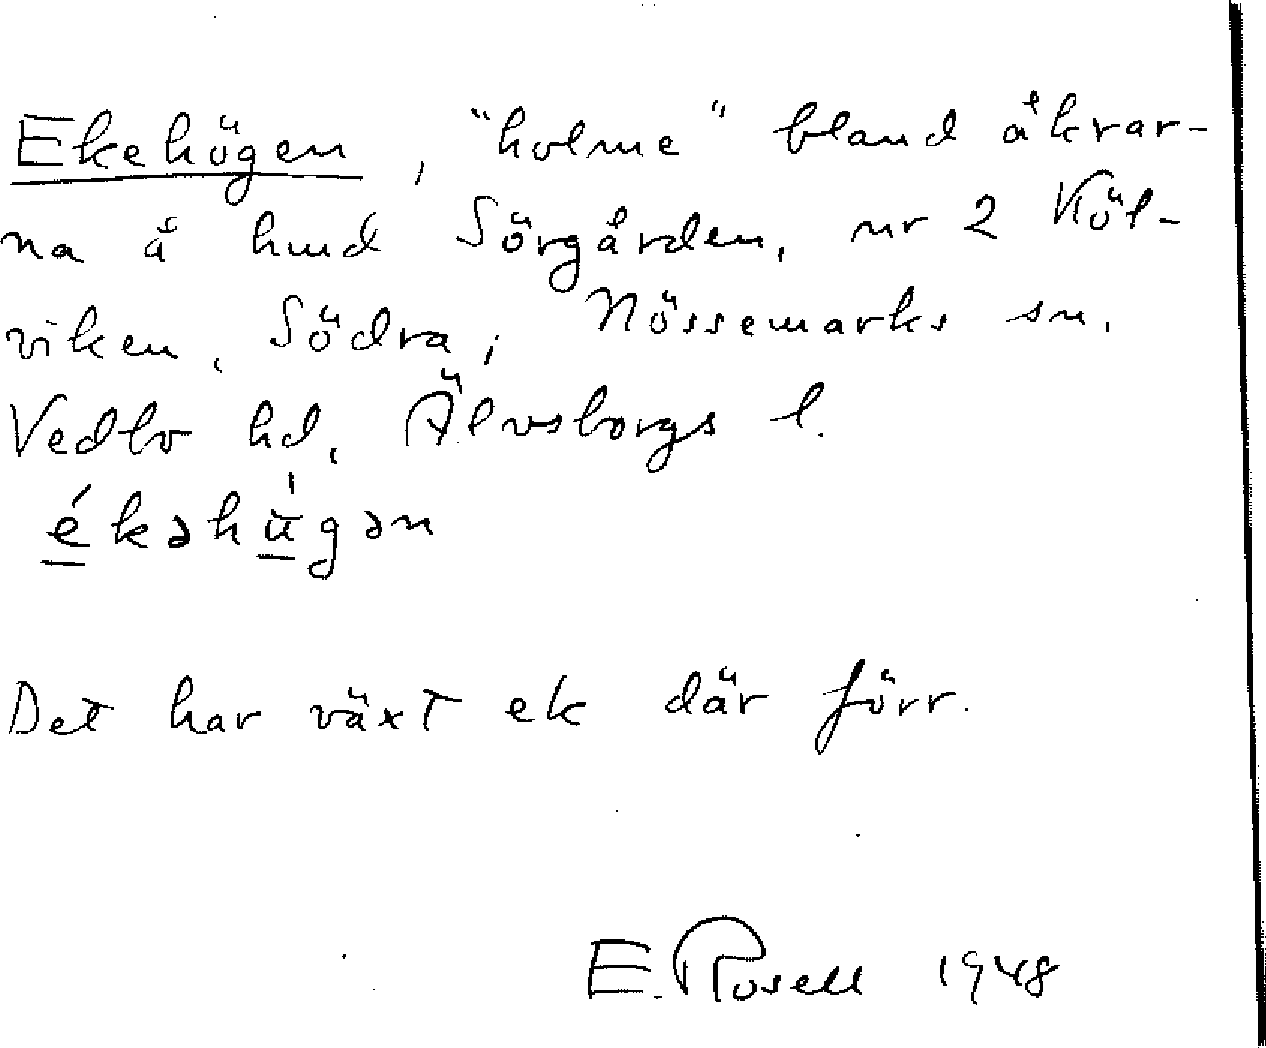 Ekehögen, "holme" bland åkrar-
na å hmd Sörgården, nr 2 Köl-
viken, Södra, Nössemarks sn,
Vedbo hd, Älvsborgs l.
ékəhǜgən
Det har växt ek där förr.
E. Rosell 1948